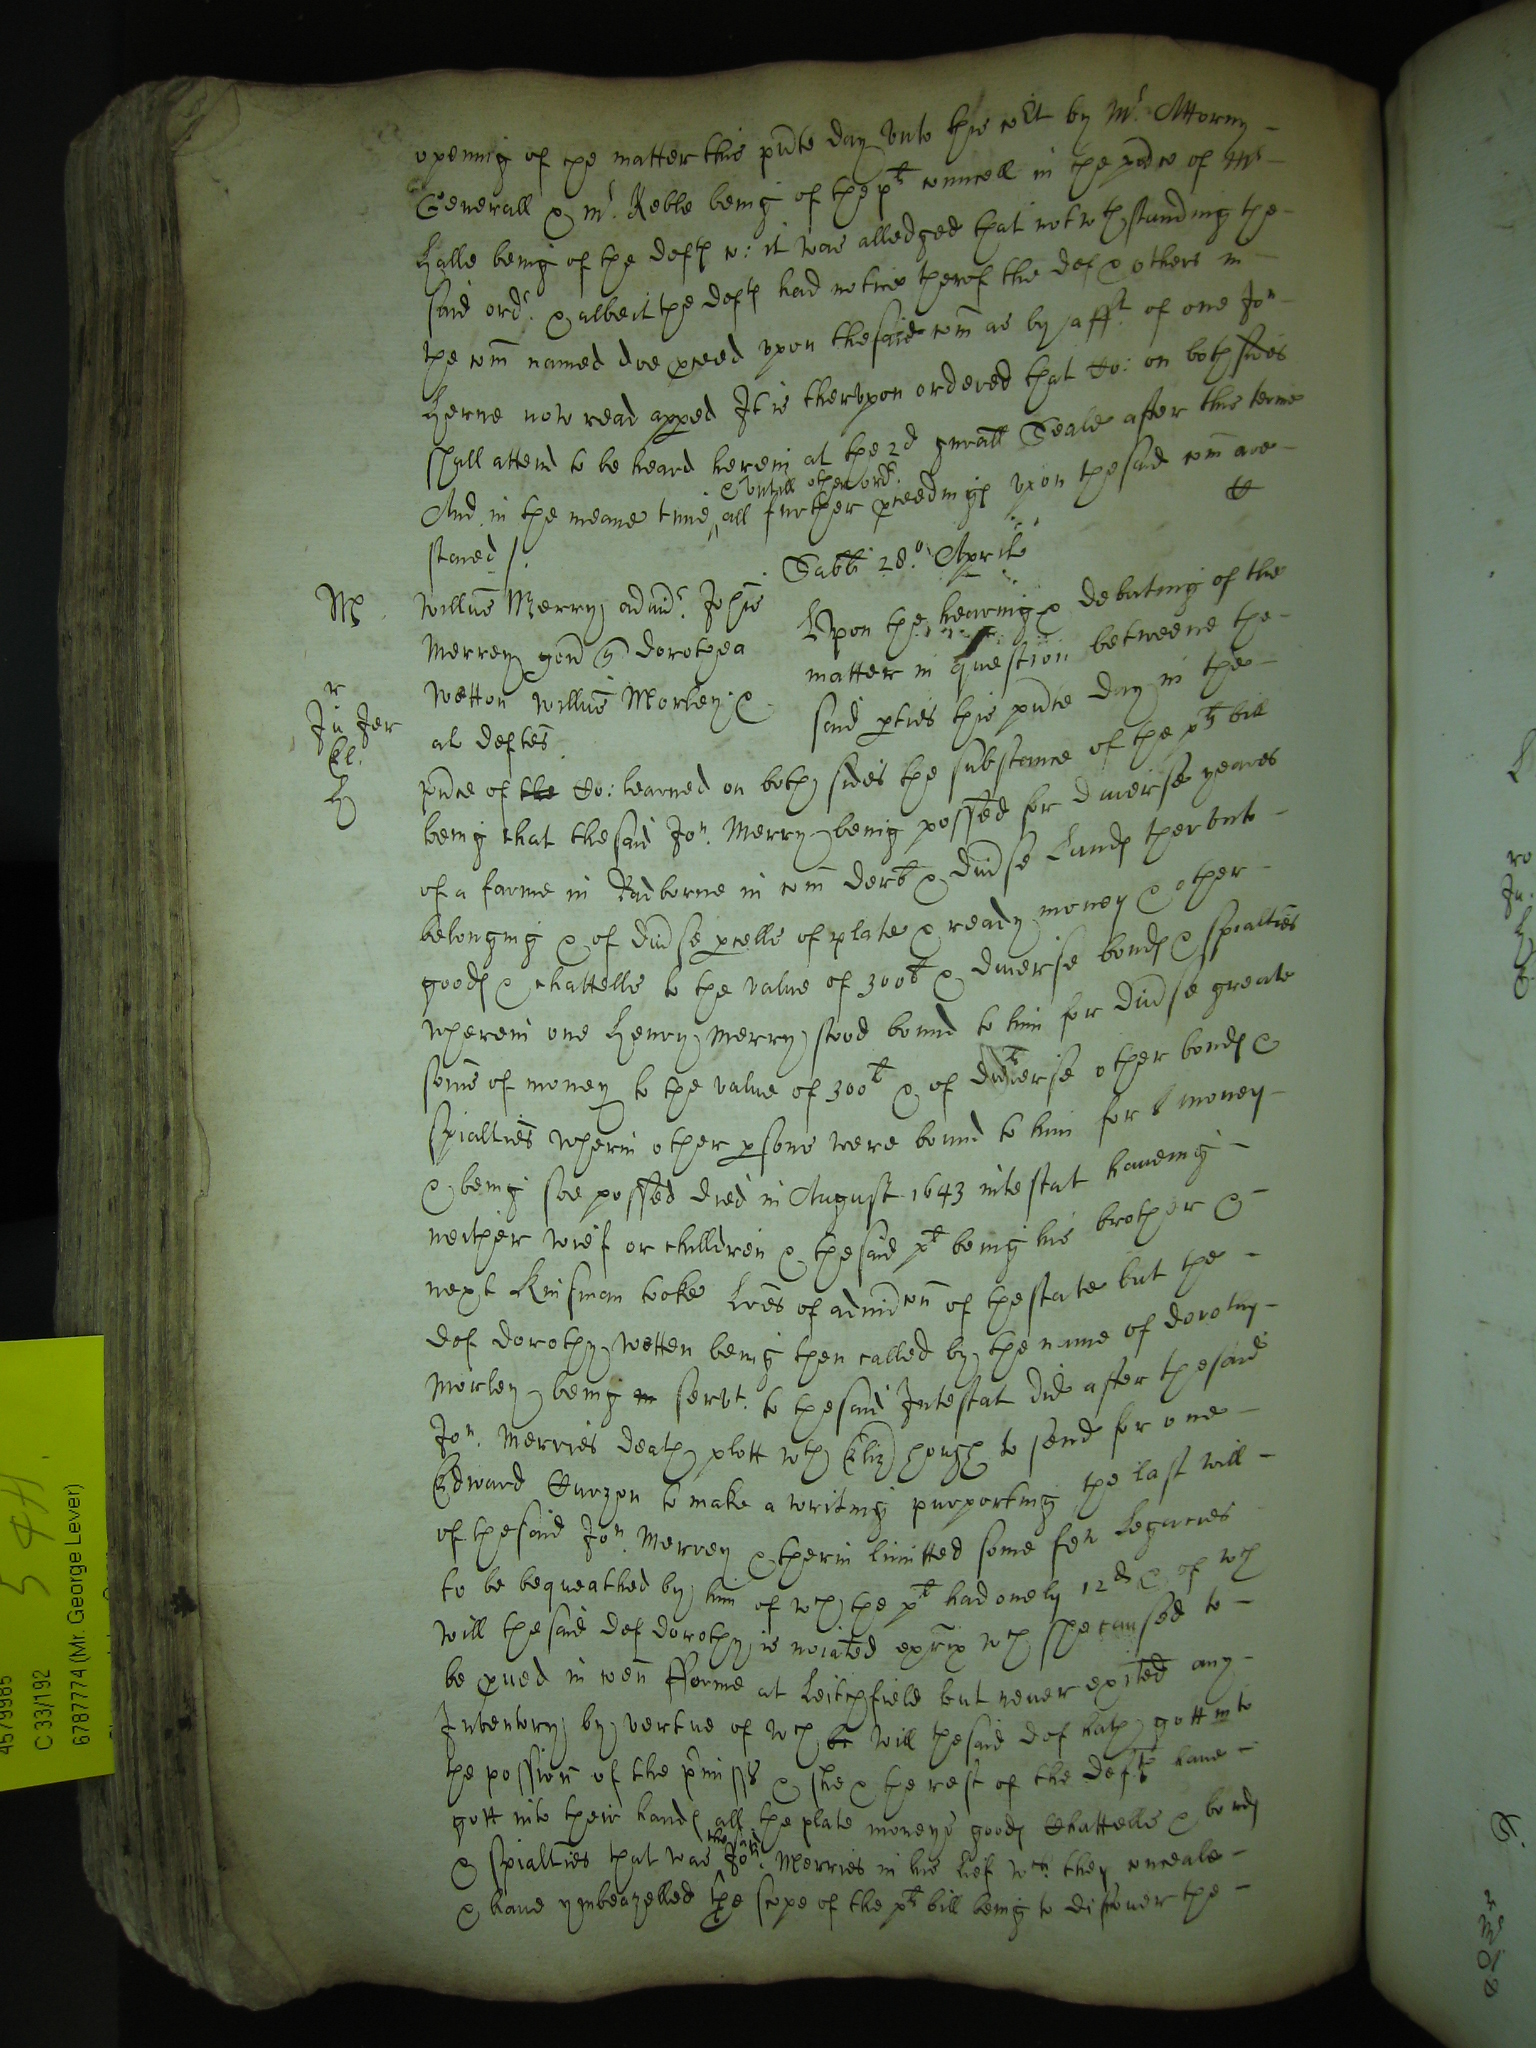 openinig of the matter this pnte day vnto this co:rt by Mr. Attorny -
Generall & Mr. Keble being of the pts councell in the pnce of Mr -
Halle being of the defts co: it was alledged that notwthstanding the -
said ordr. & albeit the defts had notice therof the def & others in -
the com named doe pceed vpon the said com as by afft. of one Jon -
Herne now read apped It is thervpon ordered that Co: on both sides
shall attend to be heard herein at the 2d gnrall Seale after this terme
& vntill other ordr.
And in the meane time all further pceedings vpon the said com are -
staied /.
Sabbi 28.o Aprilis
M
Willus Merry admr. Johis
Merrey gen q dorothea
Wetton Willus Morley &
al deftes
r
Ju Jer
kl.
H
Vpon the hearinig & debating of the
matter in question betweene the -
said pties this pnte day in the -
pnce of the Co: learned on both sides the substance of the pts bill
being that the said Jon. Merry being possed for diuerse yeares
of a farme in Radborne in com derb & diuse Lands thervnto -
belonging & of diuse pcells of plate & ready money & other -
goods & chattells to the value of 300l & diuerse bonds & spialties
wherein one Henry Merry stood bound to him for diuse greate
somes of money to the value of 300l & of diuerse other bonds &
spialties wherin other psons were bound to him for money -
& being soe possed died in August 1643 intestat haueing -
neither wief or chilldren & the said pt being his brother & -
next Kinsman tooke Lres of admcon of the state but the -
def dorothy Wetten being then called by the name of dorothy -
Morley being servt. to the said Intestat did after the said
Jon. Merries death plott wth Eliz Hough to send for one -
Edward Curzon to make a writing purporting the last will -
of the said Jon. Merrey & therin limitted some few Legacies
to be bequeathed by him of wch the pt had onely 12d & of wch
will the said def dorothy is noiated exrix wch she caused to -
be pued in coen fforme at Leitchfield but neuer exited any -
Inventory by vertue of wch will the said def hath gott into
the possion of the pmisses & she & the rest of the defts haue -
gott into their hands all the plate moneys goods Chattells & bonds
& spialties that was the said Jon. Merries in his lief wch they conceale -
& haue ymbeazelled the scope of the pts bill being to discouer the -
5 4H.
4579985
C 33/192
6787774 (Mr. George Lever)